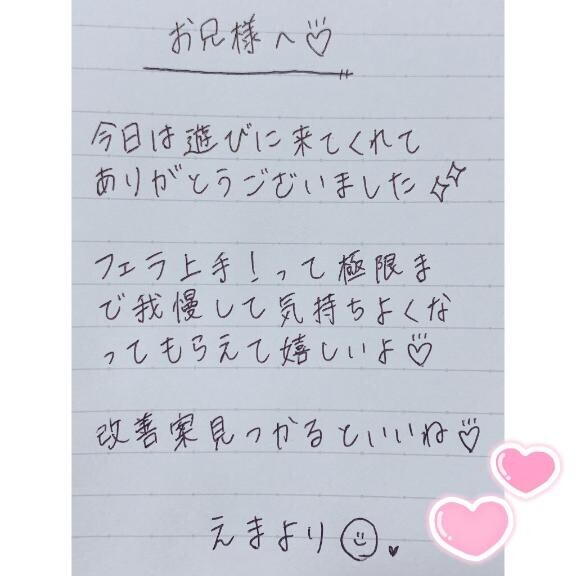 お兄様へ♡
今日は遊びに来てくれて
ありがとうございました
フェラ上手!って極限ま
で我慢して気持ちよくな
ってもらえて嬉しいよ♡
改善案見つかるといいね♡
えまより